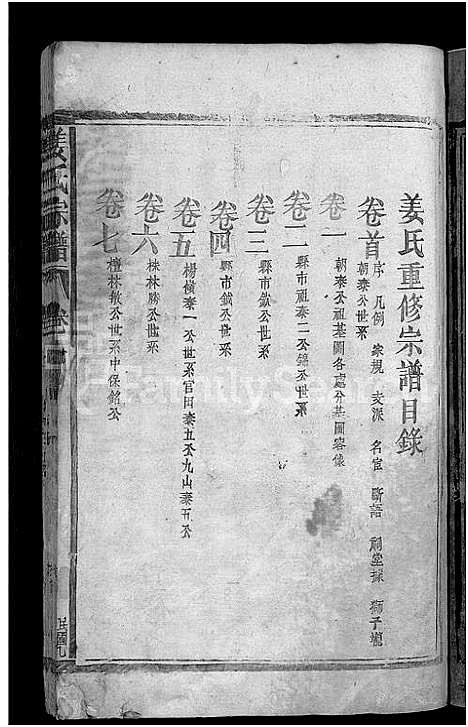 姜氏重修宗譜目錄
卷首 序 凡例 家規 支派 名宦 斷語 祠堂 獅子壠
朝泰公世系
卷一 朝泰公祖墓圖各處分墓圖容像
卷二 縣市祖泰二公錦公世系
卷三 縣市欽公世系
卷四 縣市鉞公世系
卷五 楊橫泰一公世系官田泰五公九山泰五公
卷六 株林勝公世系
卷七 檀林敏公世系中保銘公
姜氏宗譜
卷首
FamilySearch